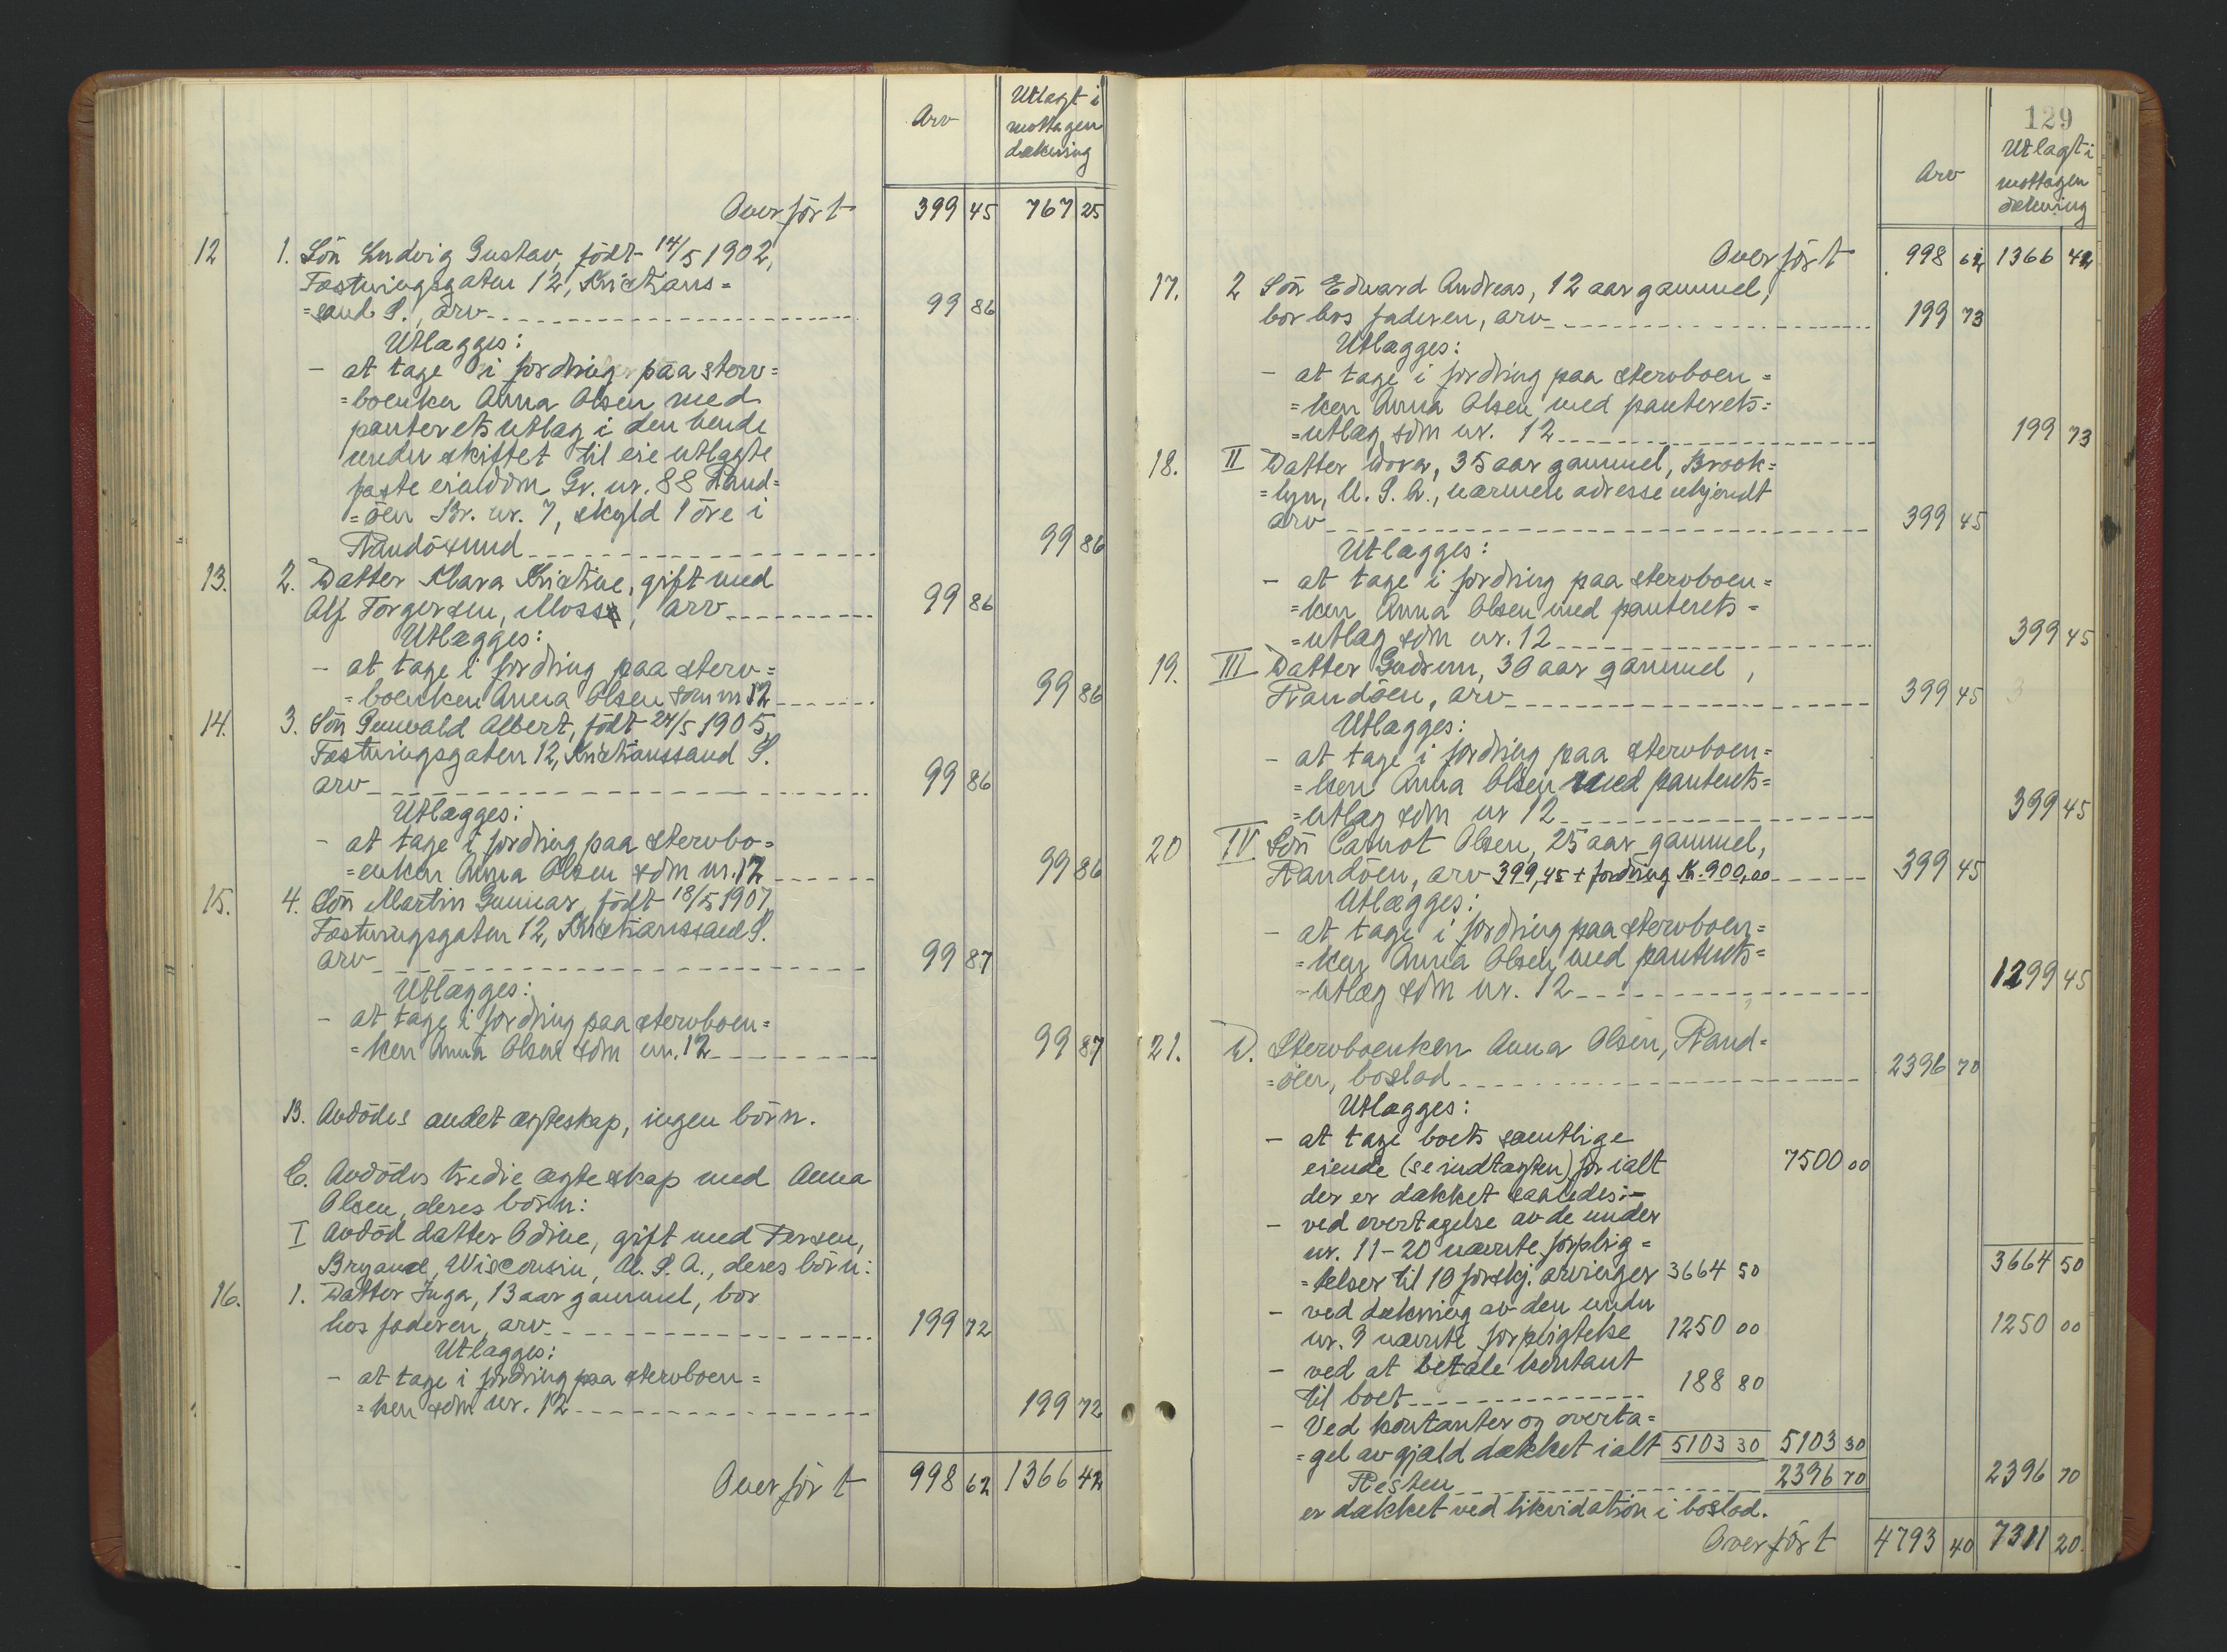 Arv
Utlagt i
mottagen
dækning
Overført 399 45 767 25
12 1. Sön Ludvig Gustav, födt 14/5 1902,
Fæstningsgaten 12, Kristians=
=sand S., arv 99 86
Utlægges:
- at tage i fordring paa sterv=
=boenken Anna Olsen med
panterets utlæg i den hende
under skiftet til eie utlagte
faste eiendom Gr. nr. 88 Rand=
=öen Br. nr. 7, skyld 1 öre i
Randösund 99 86
13. 2. Datter Klara Kristine, gift med
Alf Torgersen, Moss, arv 99 86
Utlægges:
- at tage i fordring paa sterv=
=boenken Anna Olsen som nr 12 99 86
14. 3. Sön Gunvald Albert, födt 24/5 1905,
Fæstningsgaten 12, Kristianssand S.
arv 99 86
Utlægges:
- at tage i fordring paa stervbo=
=enken Anna Olsen som nr. 12 99 86
15. 4. Sön Martin Gunnar, födt 18/5 1907,
Fæstningsgaten 12, Kristianssand S.
arv 99 87
Utlægges:
- at tage i fordring paa stervboen=
=ken Anna Olsen som nr. 12 99 87
B. Avdödes andet ægteskap, ingen börn.
C. Avdödes tredie ægteskap med Anna
Olsen, deres börn:
I Avdöd datter Odine, gift med Persen,
Bryand, Wisconsin, U. S. A., deres börn:
16. 1. Datter Inga, 13 aar gammel, bor
hos faderen, arv 199 72
Utlægges:
- at tage i fordring paa stervboen=
=ken som nr. 12 199 72
Overført 998 62 1366 42
129
Arv
Utlagt i
mottagen
dækning
Overført 998 62 1366 42
17. 2 Sön Edvard Andreas, 12 aar gammel,
bor hos faderen, arv 199 73
Utlægges:
- at tage i fordring paa stervboen=
=ken Anna Olsen med panterets=
=utlæg som nr. 12 199 73
18. II Datter Dora, 35 aar gammel, Brook=
=lyn, U. S. A., nærmere adresse ukjendt
arv 399 45
Utlægges:
- at tage i fordring paa stervboen=
=ken Anna Olsen med panterets=
=utlæg som nr. 12 399 45
19. III Datter Gudrun, 30 aar gammel,
Randöen, arv 399 45
Utlægges:
- at tage i fordring paa stervboen=
=ken Anna Olsen med panterets=
=utlæg som nr 12 399 45
20 IV Sön Carnot Olsen, 25 aar gammel,
Randöen, arv 399,45 + fordring K. 900,00 399 45
Utlægges:
- at tage i fordring paa stervboen=
=ken Anna Olsen med panterets=
=utlæg som nr. 12 1299 45
21. D. Stervboenken Anna Olsen, Rand=
=öen, boslod 2396 70
Utlægges:
- at tage boets samtlige
eiende (se indtægten) for ialt 7500 00
der er dækket saaledes:-
- ved overtagelse av de under
nr. 11-20 nævnte forplig=
=telser til 10 forskj. arvinger 3664 50 3664 50
- ved dækning av den under
nr. 9 nævnte forpligtelse 1250 00 1250 00
- ved at betale kontant
til boet 188 80
- Ved kontanter og overta=
=gel av gjæld dækket ialt 5103 30 5103 30
Resten 2396 70 2396 70
er dækket ved likvidation i boslod.
Overført 4793 40 7311 20